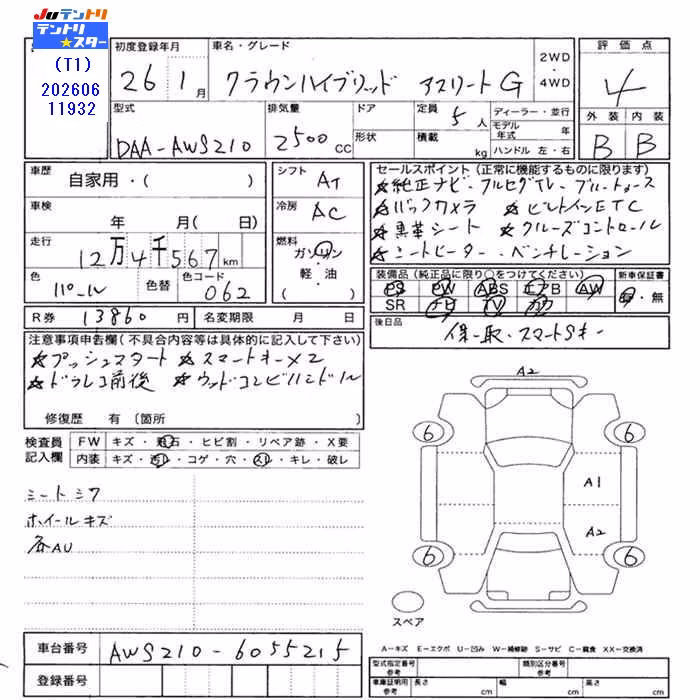 JUテントリ
テントリ★スター
(T1)
202606
11932
初度登録年月
26 1月
車名・グレード
クラウンハイブリッド アスリートG
2WD・4WD
評価点
4
外装 内装
B B
型式
DAA-AWS210
排気量
2500cc
ドア
形状
定員 5人
積載 kg
ディーラー・並行
モデル年式 年
ハンドル 左・右
車歴
自家用・( )
車検
年 月( 日)
走行
12万4千567km
色
パール
色替
色コード
062
シフト
AT
冷房
AC
燃料
ガソリン
・軽・油
( )
セールスポイント(正常に機能するものに限ります)
★純正ナビ・フルセグTV・ブルートゥース
★バックカメラ ★ビルトインETC
★黒革シート ★クルーズコントロール
★シートヒーター・ベンチレーション
装備品(純正品に限り○をつけてください)
PS PW ABS エアB AW
SR ナビ TV カワ
新車保証書
有・無
R券 13860円
名変期限 月 日
後日品
保・取・スマートSキー
注意事項申告欄(不具合内容等は具体的に記入して下さい)
★プッシュスタート ★スマートキー×2
★ドラレコ前後 ★ウッドコンビハンドル
修復歴 有〔箇所 〕
検査員記入欄
FW キズ・飛石・ヒビ割・リペア跡・X要
内装 キズ・汚レ・コゲ・穴・スレ・キレ・破レ
シートシワ
ホイールキズ
各AU
A2
6 6
A1
A2
6 6
スペア
A-キズ E-エクボ U-凹み W-補修跡 S-サビ C-腐食 XX-交換済
車台番号 AWS210-6055215
登録番号
型式指定番号 参考
類別区分番号 参考
車庫証明用 参考
長さ cm 幅 cm 高さ cm